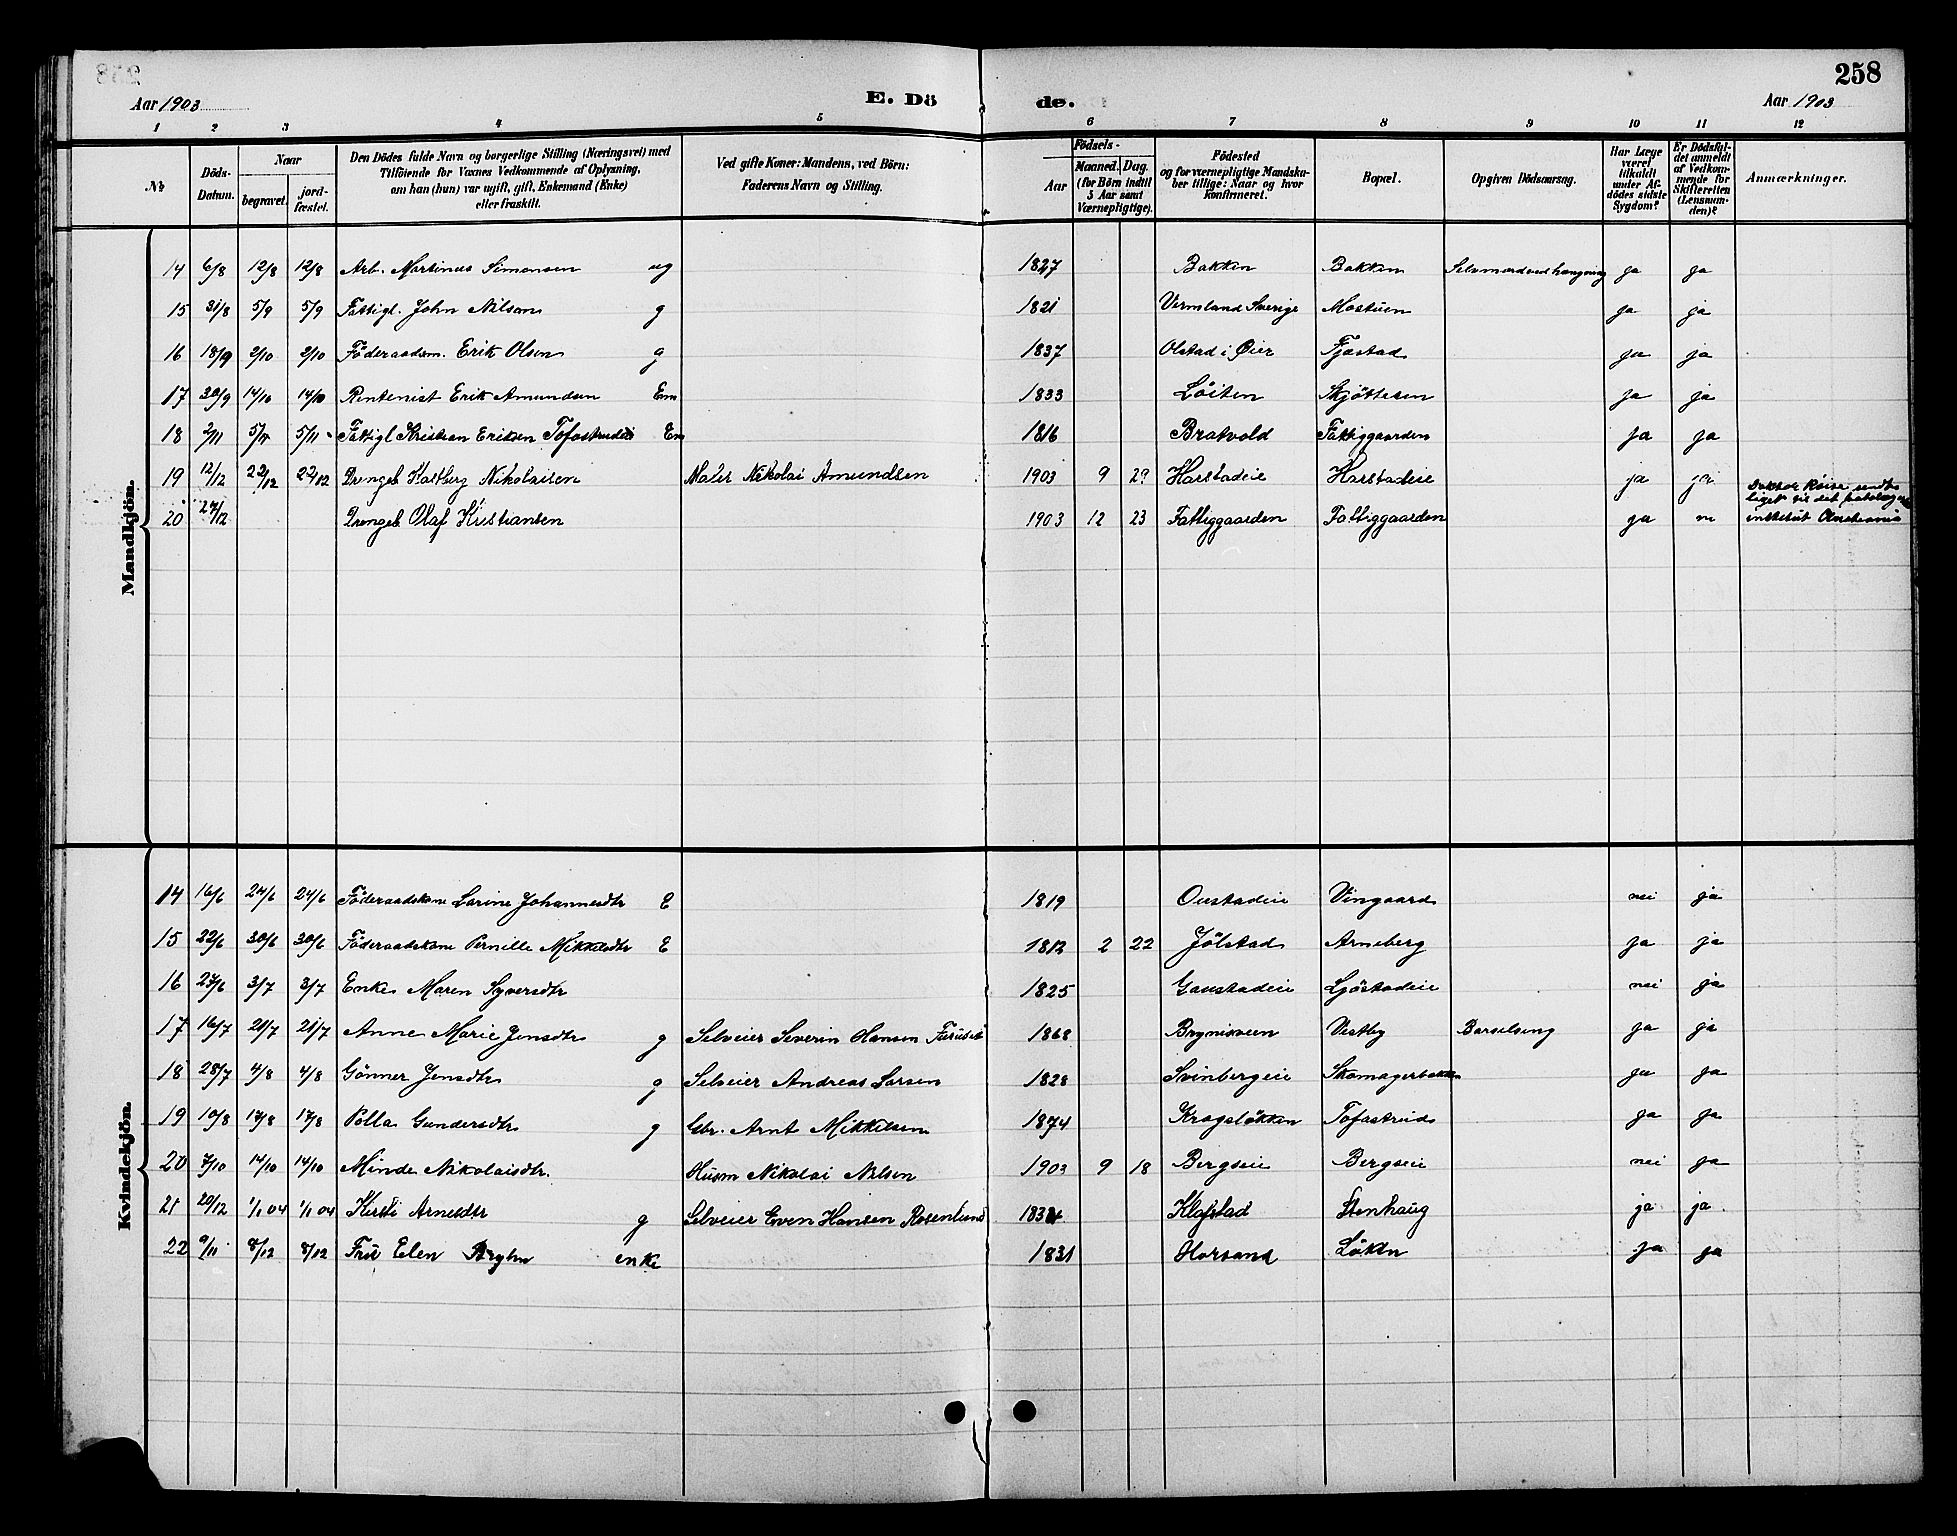 258
Aar 1903 E. Dö de. Aar 1903
1 2 3 4 5 6 7 8 9 10 11 12
No Döds-Datum. Naar begravet. jordfæstet. Den Dödes fulde Navn og borgerlige Stilling (Næringsvei) med Tilföiende for Voxnes Vedkommende af Oplysning, om han (hun) var ugift, gift, Enkemand (Enke) eller fraskilt. Ved gifte Koner: Mandens, ved Börn: Faderens Navn og Stilling. Aar Födsels- Maaned. Dag. (for Børn indtil 5 Aar samt Værnepligtige). Födested og for værnepligtige Mandskaber tillige: Naar og hvor konfirmeret. Bopæl. Opgiven Dödsaarsag. Har Læge været tilkaldt under Afdödes sidste Sygdom? Er Dödsfaldet anmeldt af Vedkommende for Skifteretten (Lensmanden)? Anmærkninger.
Mandkjön.
14 6/8 12/8 12/8 Arb. Martinus Simensen ug 1827 Bakken Bakken Selvmord ved hængning ja ja
15 31/8 5/9 5/9 Fattigl. John Nilsen g 1821 Vermland Sverige Mostuen ja ja
16 18/9 2/10 2/10 Föderaadsm. Erik Olsen g 1837 Olstad i Øier Fjæstad ja ja
17 30/9 14/10 14/10 Rentenist Erik Amundsen Em 1833 Löiten Skjöttesen ja ja
18 2/11 5/11 5/11 Fattigl Kristian Eriksen Tofastrudei Em 1816 Bratvold Fattiggaarden ja ja
19 12/12 22/12 22/12 Drengeb Karlberg Nikolaisen Maler Nikolai Amundsen 1903 9 29 Harstadeie Harstadeie ja ja
20 27/12 Drengeb Olaf Kristiansen 1903 12 23 Fattiggaarden Fattiggaarden ja Doktor sendte liget til det institut
Kvindekjön.
14 16/6 24/6 24/6 Föderaadskone Larine Johannesdtr E 1819 Oustadeie Vingaard nei ja
15 22/6 30/6 30/6 Föderaadskone Pernille Mikkelsdtr E 1812 2 22 Jölstad Arneberg ja ja
16 27/6 3/7 3/7 Enke Maren Syversdtr 1825 Gaustadeie Ljöstadeie nei ja
17 16/7 21/7 21/7 Anne Marie Jensdtr g Selveier Severin Hansen Furuset 1868 Brynisveen Vestby Barselseng ja ja
18 28/7 4/8 4/8 Gönner Jensdtr g Selveier Andreas Larsen 1828 Svinbergeie Skomagerbakken ja ja
19 10/8 17/8 17/8 Polla Gundersdtr g Gbr. Arnt Mikkelsen 1874 Krogsløkken Tofastrud ja ja
20 7/10 14/10 14/10 Minda Nikolaisdtr. Husm Nikolai Nilsen 1903 9 18 Bergseie Bergseie nei ja
21 20/12 1/1 04 1/1 04 Kirsti Arnesdtr g Selveier Even Hansen Rosenlund Klafstad Stenhaug ja ja
22 9/11 8/12 8/12 Fru Elen Bryhn enke 1831 Horsand Lökn ja ja